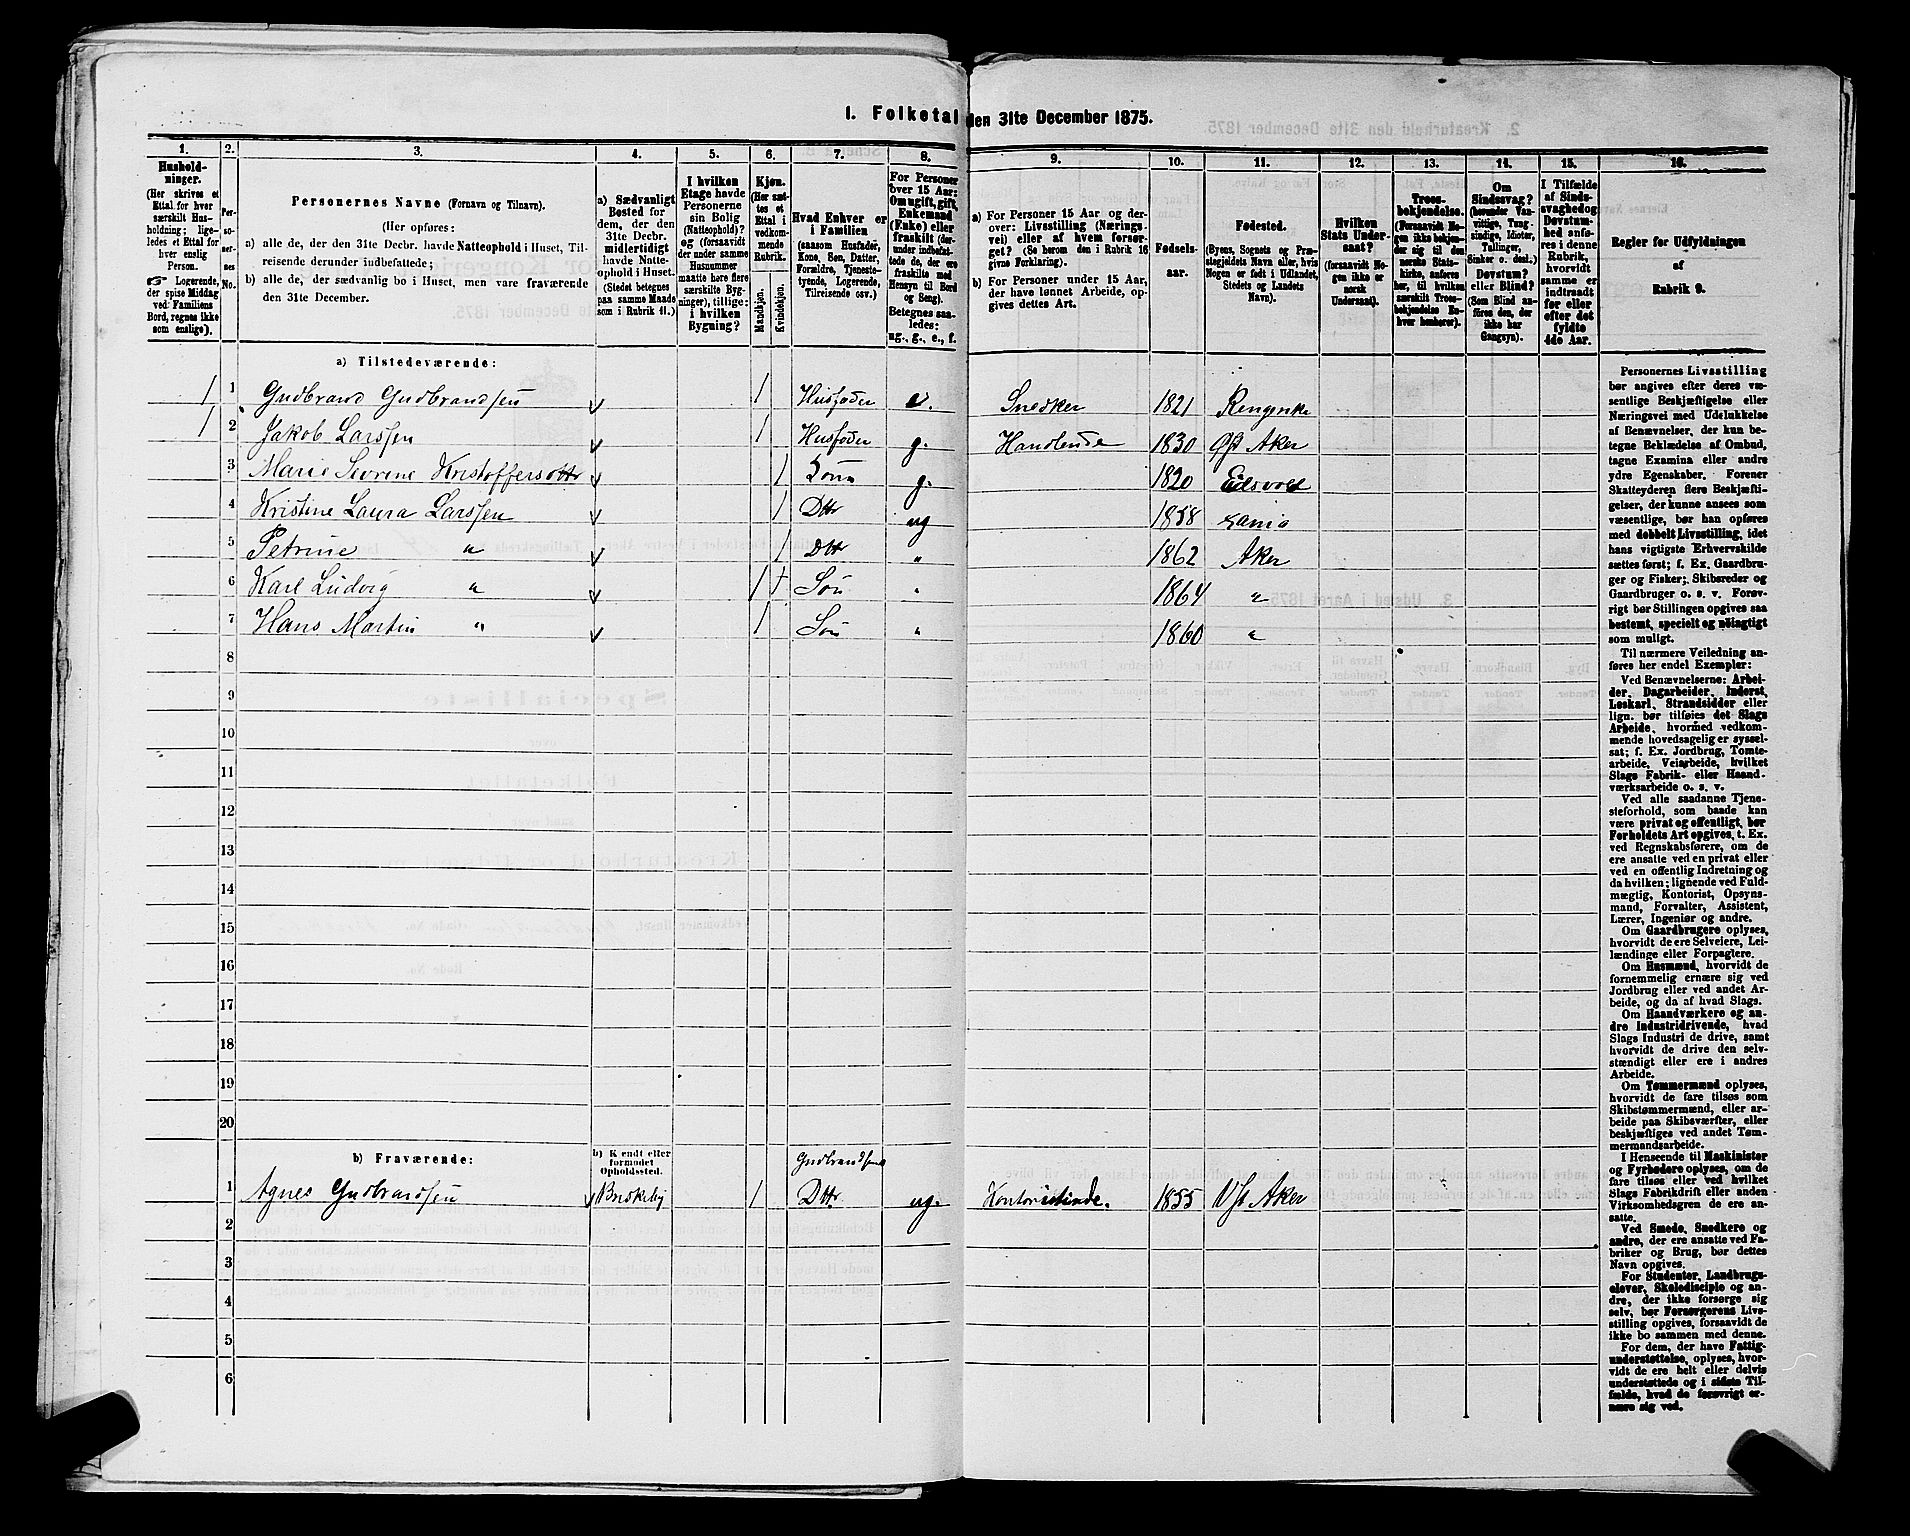 1. Folketal den 31te December 1875.
1. 2. 3. 4. 5. 6. 7. 8. 9. 10. 11. 12. 13. 14. 15. 16.
Husholdninger.
(Her skrives et
Ettal for hver
særskilt Hus-
holdning; lige-
ledes et Ettal for
hver enslig
Person.
☞ Logerende,
der spise Middag
ved Familiens
Bord, regnes ikke
som enslige).
Per-
so-
ner-
nes
No.
Personernes Navne (Fornavn og Tilnavn).
(Her opføres:
a) alle de, der den 31te Decbr. havde Natteophold i Huset, Til-
reisende derunder indbefattede;
b) alle de, der sædvanlig bo i Huset, men vare fraværende
den 31te December.
a) Sædvanligt
Bosted for
dem, der den
31te Decbr.
midlertidigt
havde Natte-
ophold i Huset.
(Stedet betegnes
paa samme Maade
som i Rubrik 11.)
I hvilken
Etage havde
Personerne
sin Bolig
(Natteophold)?
og (forsaavidt
der under samme
Husnummer
maatte høre flere
særskilte Byg-
ninger), tillige:
i hvilken
Bygning?
Kjøn.
(Her sæt-
tes et
Ettal i
vedkom-
mende
Rubrik.
Mandkjøn.
Kvindekjøn.
Hvad Enhver er
i Familien
(saasom Husfader,
Kone, Søn, Datter,
Forældre, Tjeneste-
tyende, Logerende,
Tilreisende osv.)
For Personer
over 15 Aar:
Om ugift, gift,
Enkemand
(Enke) eller
fraskilt (der-
under indbefat-
tede de, der ere
fraskilte med
Hensyn til Bord
og Seng).
Betegnes saa-
ledes:
ug., g., e., f.
a) For Personer 15 Aar og der-
over: Livsstilling (Nærings-
vei) eller af hvem forsør-
get? (Se herom den i Rubrik 16
givne Forklaring).
b) For Personer under 15 Aar,
der have lønnet Arbeide, op-
gives dettes Art.
Fødsels-
aar.
Fødested.
(Byens, Sognets og Præ-
stegjeldets Navn eller, hvis
Nogen er født i Udlandet,
Stedets og Landets
Navn).
Hvilken
Stats Under-
saat?
(forsaavidt No-
gen ikke er
norsk
Undersaat).
Troes-
bekjendelse.
(Forsaavidt No-
gen ikke bekjen-
der sig til den
norske Stats-
kirke, anføres
her, til hvilken
særskilt Troes-
bekjendelse En-
hver henhører).
Om
Sindssvag?
(herunder Van-
vittige, Tung-
sindige, Idioter,
Tullinger,
Sinker o. desl.)
Døvstum?
eller Blind?
(Som Blind an-
føres den, der
ikke har
Gangsyn).
I Tilfælde
af Sinds-
svaghed og
Døvstum-
hed anfø-
res i denne
Rubrik,
hvorvidt
samme er
indtraadt
før eller
efter det
fyldte
4de Aar.
Regler for Udfyldningen
af
Rubrik 9.
a) Tilstedeværende:
1 1 Gudbrand Gudbrandsen 1 Husfader e. Snedker 1821 Ringerike
1 2 Jakob Larssen 1 Husfader g. Handlende 1830 Øst Aker
3 Marie Sevrine Kristoffersdttr 1 Kone g. 1820 Eidsvold
4 Kristine Laura Larssen 1 Dttr ug 1858 Xania
5 Petrine " 1 Dttr " 1862 Aker
6 Karl Ludvig " 1 Søn " 1864 "
7 Hans Martin " 1 Søn " 1860 "
8
9
10
11
12
13
14
15
16
17
18
19
20
b) Fraværende:
b) Kjendt eller
formodet
Opholdssted.
Gudbrandsens
1 Agnes Gudbrandsen Briskeby 1 Dttr. ug. Kontoristinde. 1855 V/st Aker
2
3
4
5
6
Personernes Livsstilling
bør angives efter deres væ-
sentlige Beskjæftigelse eller
Næringsvei med Udelukkelse
af Benævnelser, der kun be-
tegne Beklædelse af Ombud,
tagne Examina eller andre
ydre Egenskaber. Forener
Skatteyderen flere Beskjæfti-
gelser, der kunne ansees som
væsentlige, bør han opføres
med dobbelt Livsstilling, idet
hans vigtigste Erhvervskilde
sættes først; f. Ex. Gaardbru-
ger og Fisker; Skibsreder og
Gaardbruger o. s. v. Forøv-
rigt bør Stillingen opgives saa
bestemt, specielt og nøiagtigt
som muligt.
Til nærmere Veiledning an-
føres her endel Exempler:
Ved Benævnelserne: Arbei-
der, Dagarbeider, Inderst,
Løskarl, Strandsidder eller
lign. bør tilføies det Slags
Arbeide, hvormed vedkom-
mende hovedsagelig er syssel-
sat; f. Ex. Jordbrug, Tomte-
arbeide, Veiarbeide, hvilket
Slags Fabrik- eller Haand-
værksarbeide o. s. v.
Ved alle saadanne Tjene-
steforhold, som baade kan
være privat og offentligt, bør
Forholdets Art opgives, t. Ex.
ved Regnskabsførere, om de
ere ansatte ved en privat eller
ved en offentlig Indretning og
da hvilken; lignende ved Fuld-
mægtig, Kontorist, Opsyns-
mand, Forvalter, Assistent,
Lærer, Ingeniør og andre.
Om Gaardbrugere oplyses,
hvorvidt de ere Selveiere, Lei-
lændinge eller Forpagtere.
Om Husmænd, hvorvidt de
fornemmelig ernære sig ved
Jordbrug eller ved andet Ar-
beide, og da af hvad Slags.
Om Haandværkere og an-
dre Industridrivende, hvad
Slags Industri de drive, samt
hvorvidt de drive den selv-
stændigt eller ere i andres
Arbeide.
Om Tømmermænd oplyses,
hvorvidt de fare tilsøs som
Skibstømmermænd, eller ar-
beide paa Skibsværfter, eller
beskjæftiges ved andet Tøm-
mermandsarbeide.
I Henseende til Maskinister
og Fyrbødere oplyses, om de
fare tilsøs eller ved hvilket
Slags Fabrikdrift eller anden
Virksomhedsgren de ere an-
satte.
Ved Smede, Snedkere og
andre, der ere ansatte ved Fa-
briker og Brug, bør dettes
Navn opgives.
For Studenter, Landbrugs-
elever, Skoledisciple og an-
dre, der ikke forsørge sig
selv, bør Forsørgerens Livs-
stilling opgives, forsaavidt de
ikke bo sammen med denne.
For dem, der have Fattig-
understøttelse, oplyses, hvor-
vidt de ere helt eller delvis
understøttede og i sidste Til-
fælde, hvad de forøvrigt er-
nære sig ved.